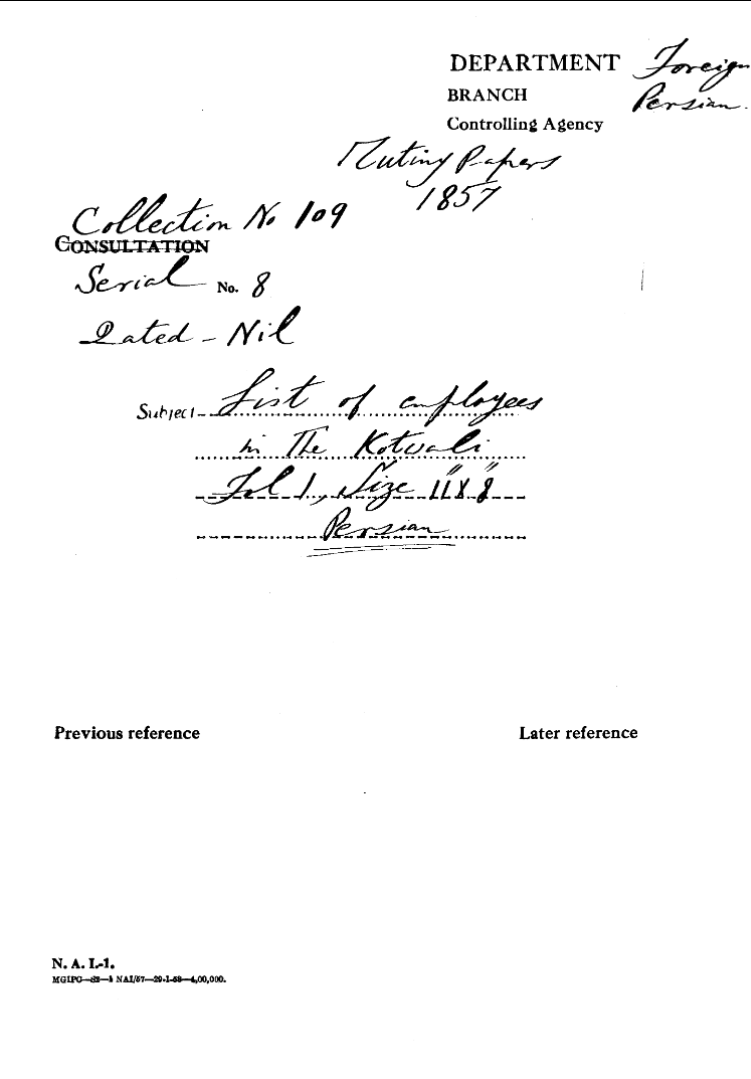 DEPARTMENT Foreign
BRANCH Persian.
Controlling Agency
Mutiny Papers
1857
Collection No 109
CONSULTATION
Serial No. 8
Dated - Nil
Subject - List of employees
in The Kotwali
Fol 1, Size 11" x 8"
Persian
Previous reference Later reference
N. A. I.-1.
NAI/57—29-1-58—4,00,000.